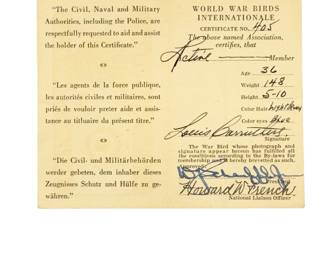 "The Civil, Naval and Military
Authorities, including the Police, are
respectfully requested to aid and assist
the holder of this Certificate."
"Les agents de la force publique,
les autorités civiles et militaires, sont
priés de vouloir preter aide et assis-
tance au tituaire du présent titre."
"Die Civil- und Militärbehörden
werder gebeten, dem inhaber dieses
Zeugnisses Schutz und Hülfe zu ge-
währen."
WORLD WAR BIRDS
INTERNATIONALE
CERTIFICATE NO. 405
The above named Association,
certifies, that
Active Member
Age 36
Weight 148
Height 5-10
Color Hair Light Brown
Color eyes Blue
Louis
Signature
The War Bird whose photograph and
signature appear hereon has fulfilled all
the conditions according to the By-laws for
membership and is hereby invested as such.
President
Howard W. French
National Liaison Officer